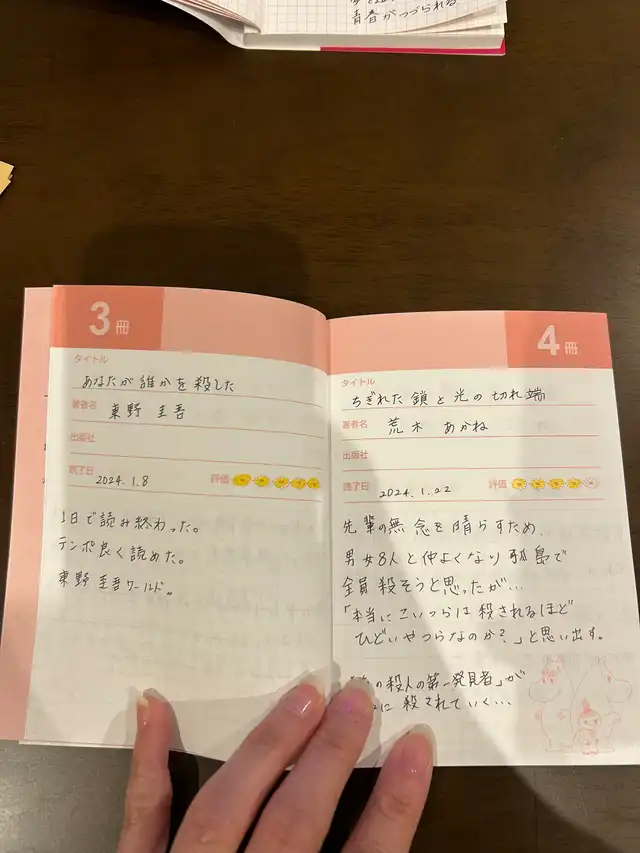 青春がつづられる
3冊
タイトル
あなたが誰かを殺した
著者名 東野 圭吾
出版社
読了日 2024.1.8 評価
1日で読み終わった。
テンポ良く読めた。
東野 圭吾ワールド。
4冊
タイトル
ちぎれた鎖と光の切れ端
著者名 荒木 あかね
出版社
読了日 2024.1.22 評価
先輩の無念を晴らすため、
男女8人と仲よくなり孤島で
全員殺そうと思ったが…
「本当にこいつらは殺されるほど
ひどいやつらなのか?」と思い出す。
の殺人の第一発見者」が
に殺されていく…